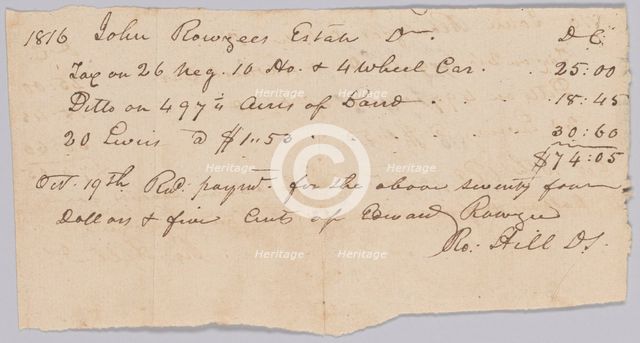 1816 John Rowzees Estate Dr. D C
Tax on 26 Neg. 10 Ho. & 4 Wheel Car. . 25:00
Ditto on 497 Acres of Land . . . 18:45
20 Levies @ $1..53 . . . . . 30:60
$74:05
Oct. 19th Recd. paymt. for the above seventy four
Dollars & five Cents of Edward Rowzee
Ro: Hill DS.
Heritage
C